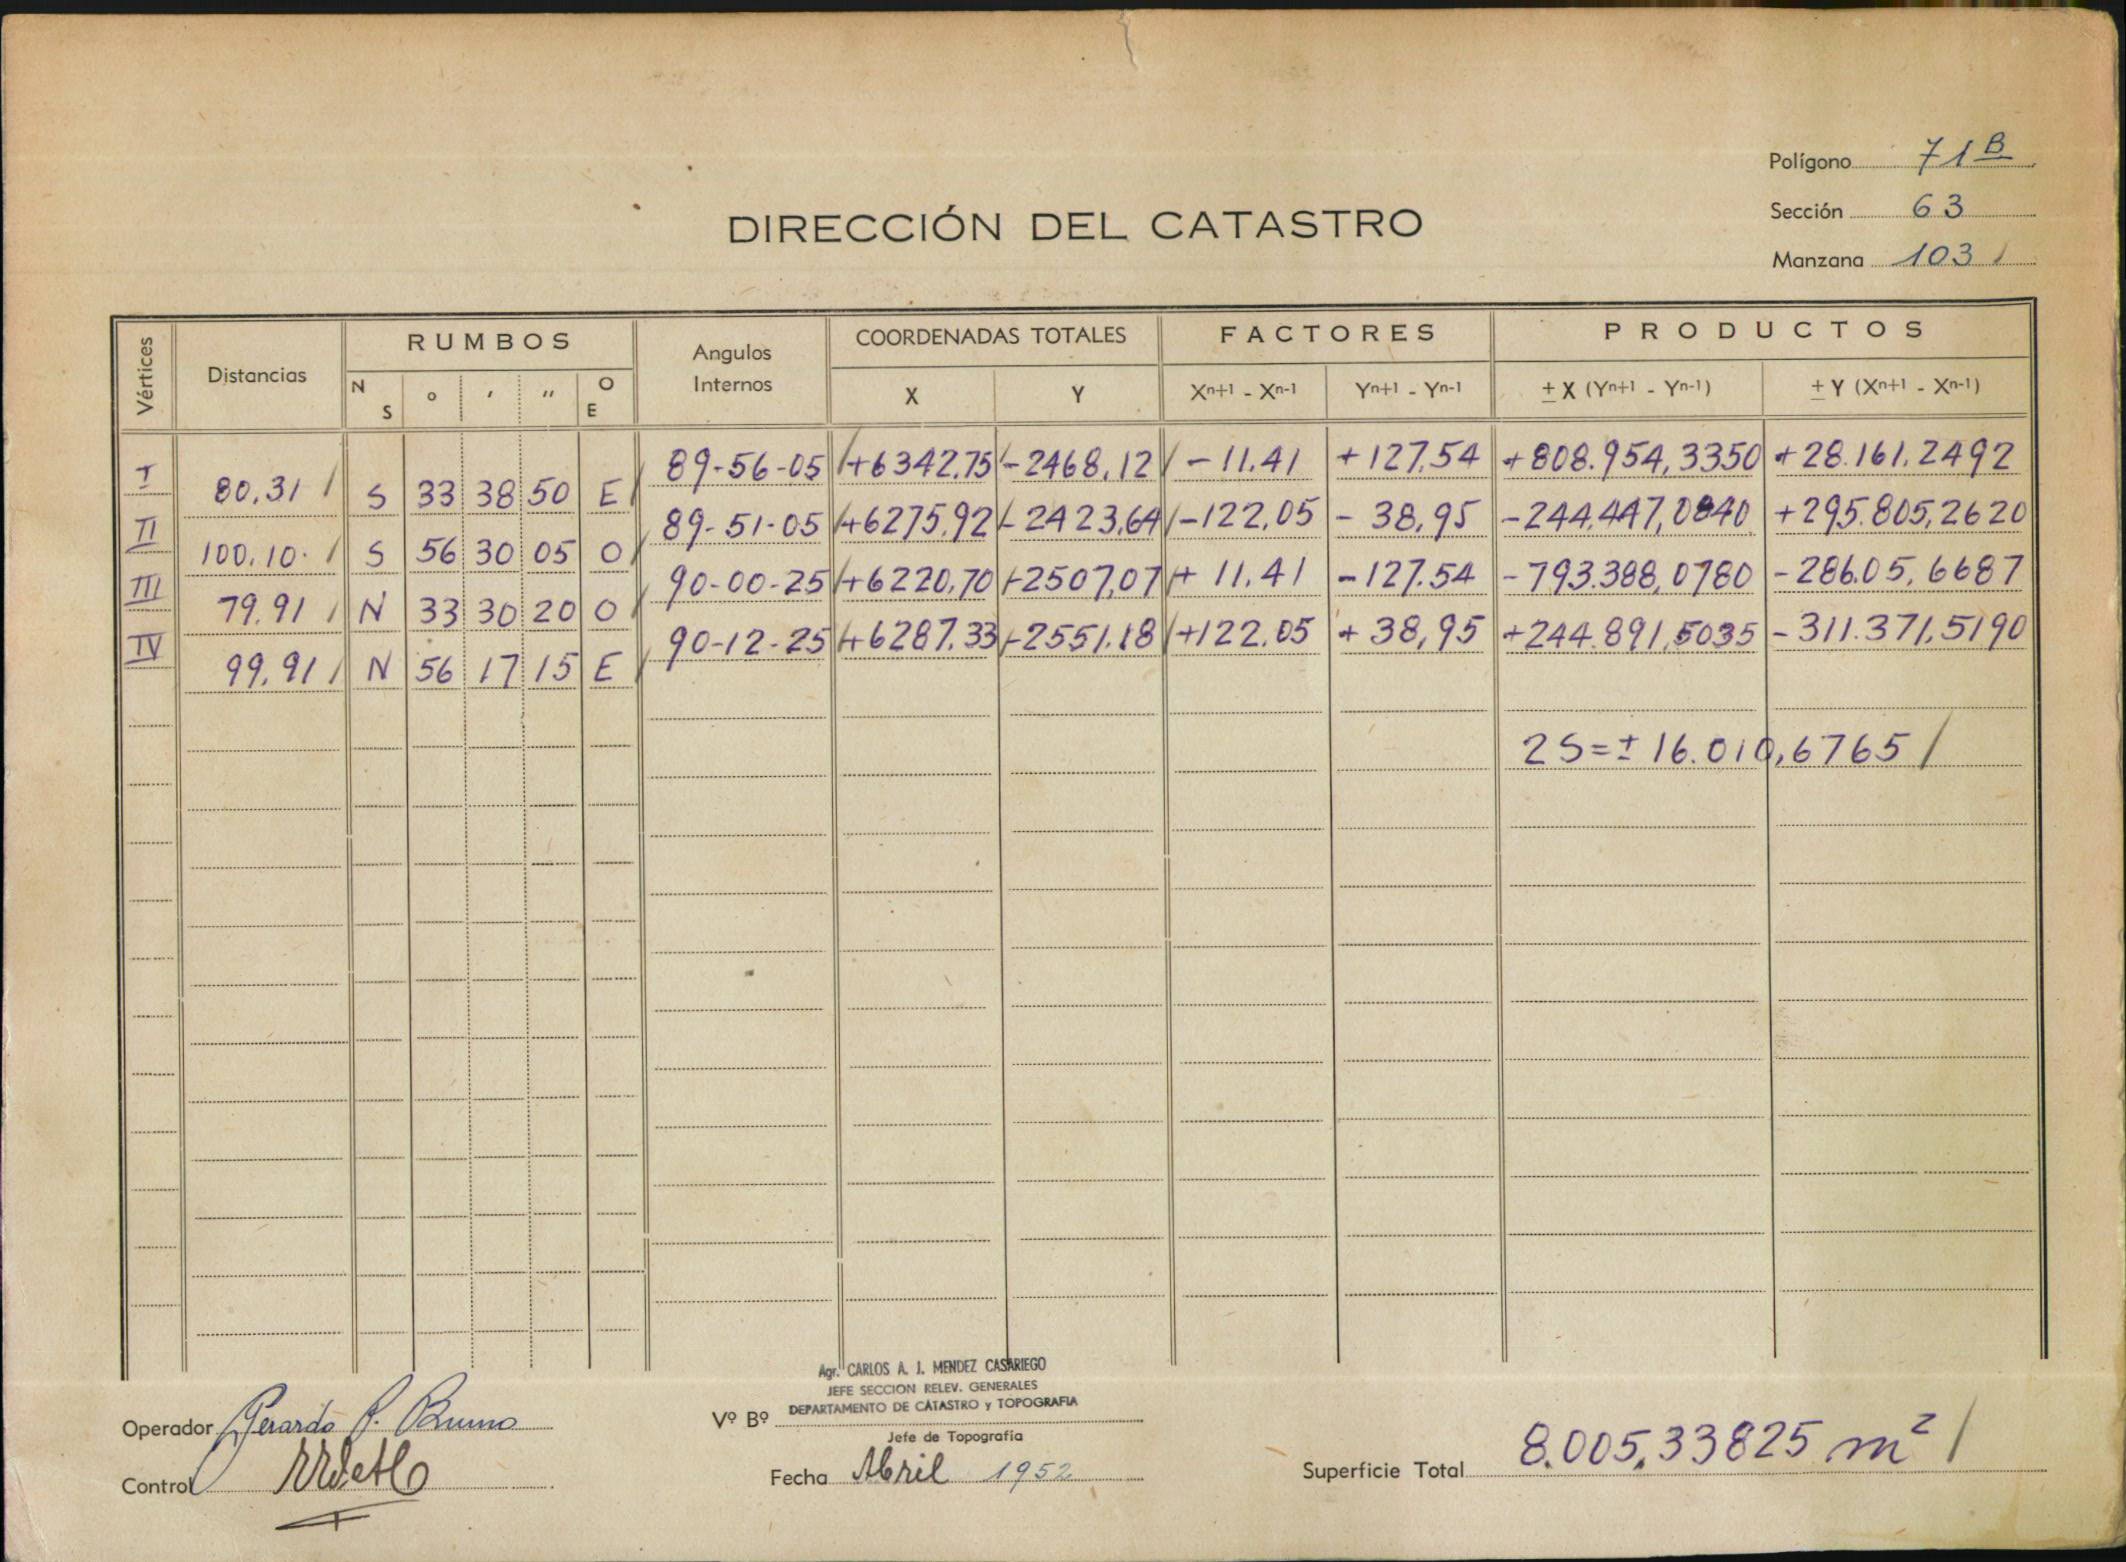 Polígono 71 B
Sección 63
Manzana 103 /
DIRECCIÓN DEL CATASTRO
Vértices Distancias RUMBOS Angulos Internos COORDENADAS TOTALES FACTORES PRODUCTOS
N S ° ' " O E X Y Xn+1 - Xn-1 Yn+1 - Yn-1 ± X (Yn+1 - Yn-1) ± Y (Xn+1 - Xn-1)
I 89-56-05 /+6342,75 /-2468,12 / -11.41 +127,54 +808.954,3350 +28.161,2492
80,31 / S 33 38 50 E /
II 89-51-05 /+6275,92 /-2423,64 /-122,05 - 38,95 -244.447,0840 +295.805,2620
100,10. / S 56 30 05 O /
III 90-00-25 /+6220,70 /-2507,07 /+ 11.41 -127.54 -793.388,0780 -286.05,6687
79,91 / N 33 30 20 O /
IV 90-12-25 /+6287,33 /-2551.18 /+122.05 + 38,95 +244.891,5035 -311.371,5190
99,91 / N 56 17 15 E /
2S=± 16.010,6765 /
Agr. CARLOS A. J. MENDEZ CASARIEGO
JEFE SECCION RELEV. GENERALES
DEPARTAMENTO DE CATASTRO y TOPOGRAFIA
Operador Gerardo P. Bruno
Vº Bº
Jefe de Topografía
Control
Fecha Abril 1952
Superficie Total 8.005,33825 m² /